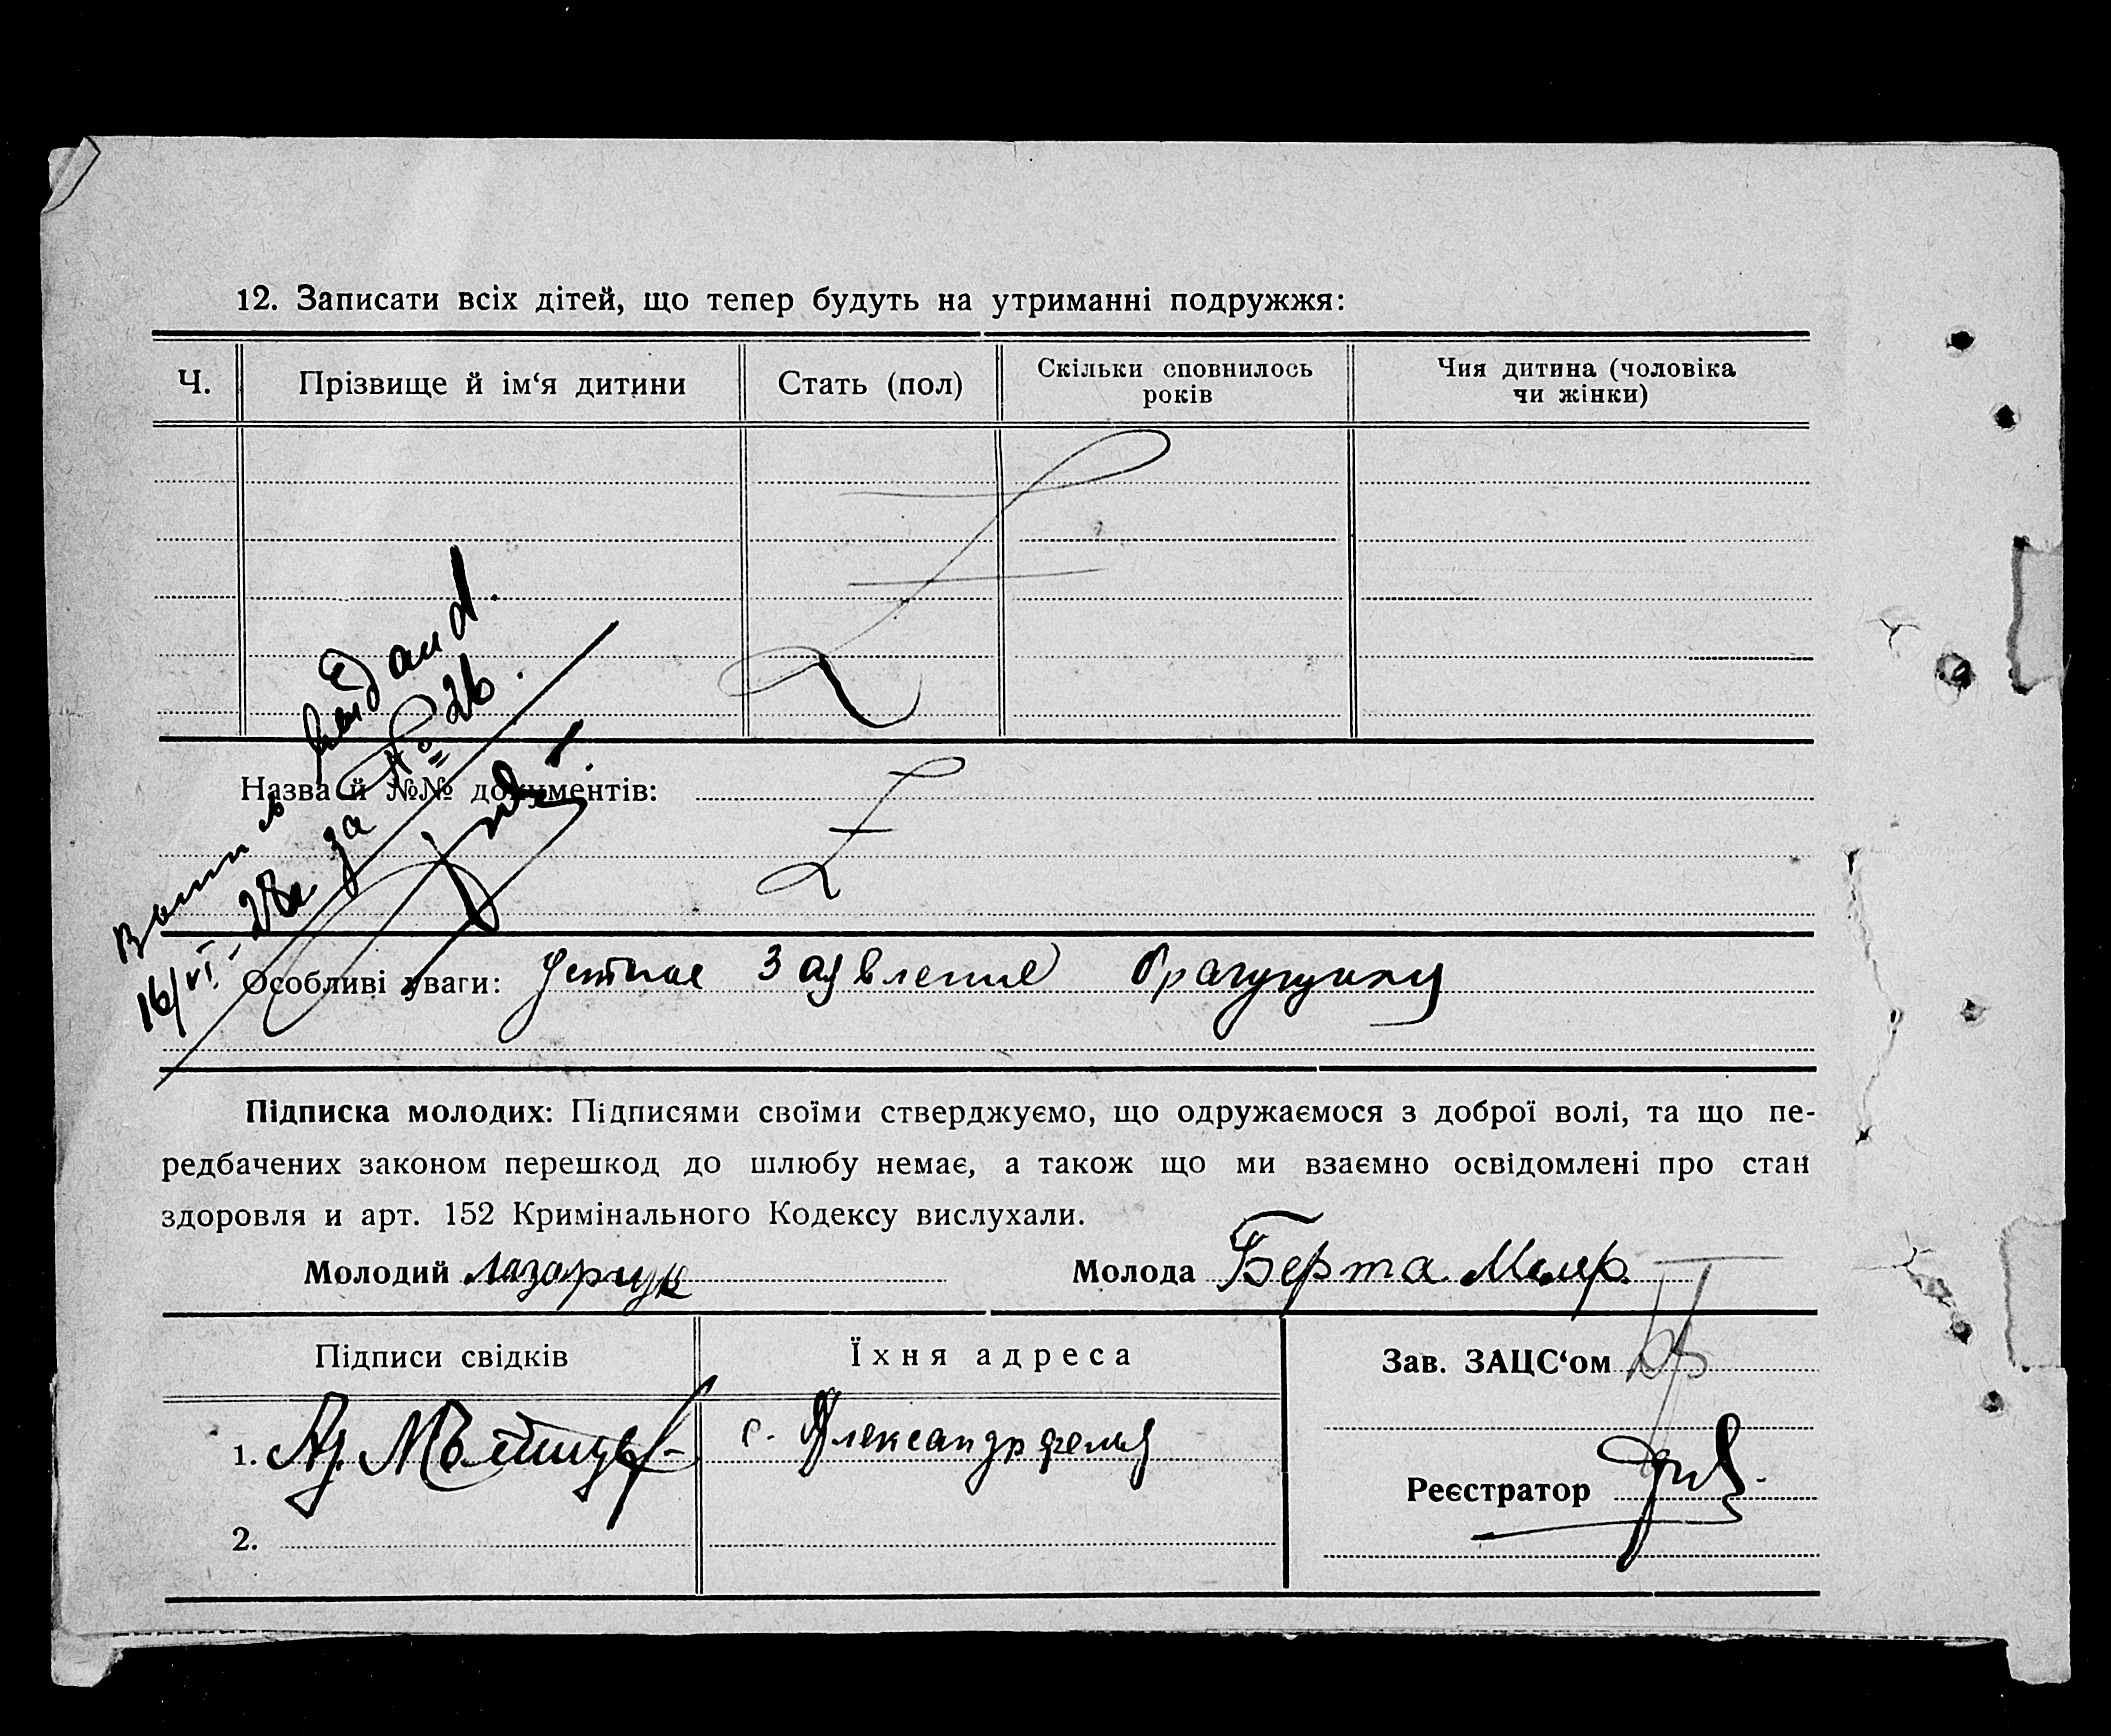 12. Записати всіх дітей, що тепер будуть на утриманні подружжя:
Ч. Прізвище й ім‘я дитини Стать (пол) Скільки сповнилось років Чия дитина (чоловіка чи жінки)
Назва й №№ документів:
16/VI-28 за № 26.
Особливі уваги: Устное Заявление
Підписка молодих: Підписями своїми стверджуємо, що одружаємося з доброї волі, та що пе-
редбачених законом перешкод до шлюбу немає, а також що ми взаємно освідомлені про стан
здоровля и арт. 152 Кримінального Кодексу вислухали.
Молодий Молода Берта
Підписи свідків Їхня адреса Зав. ЗАЦС‘ом
1. с. Александрфельд
Реєстратор
2.